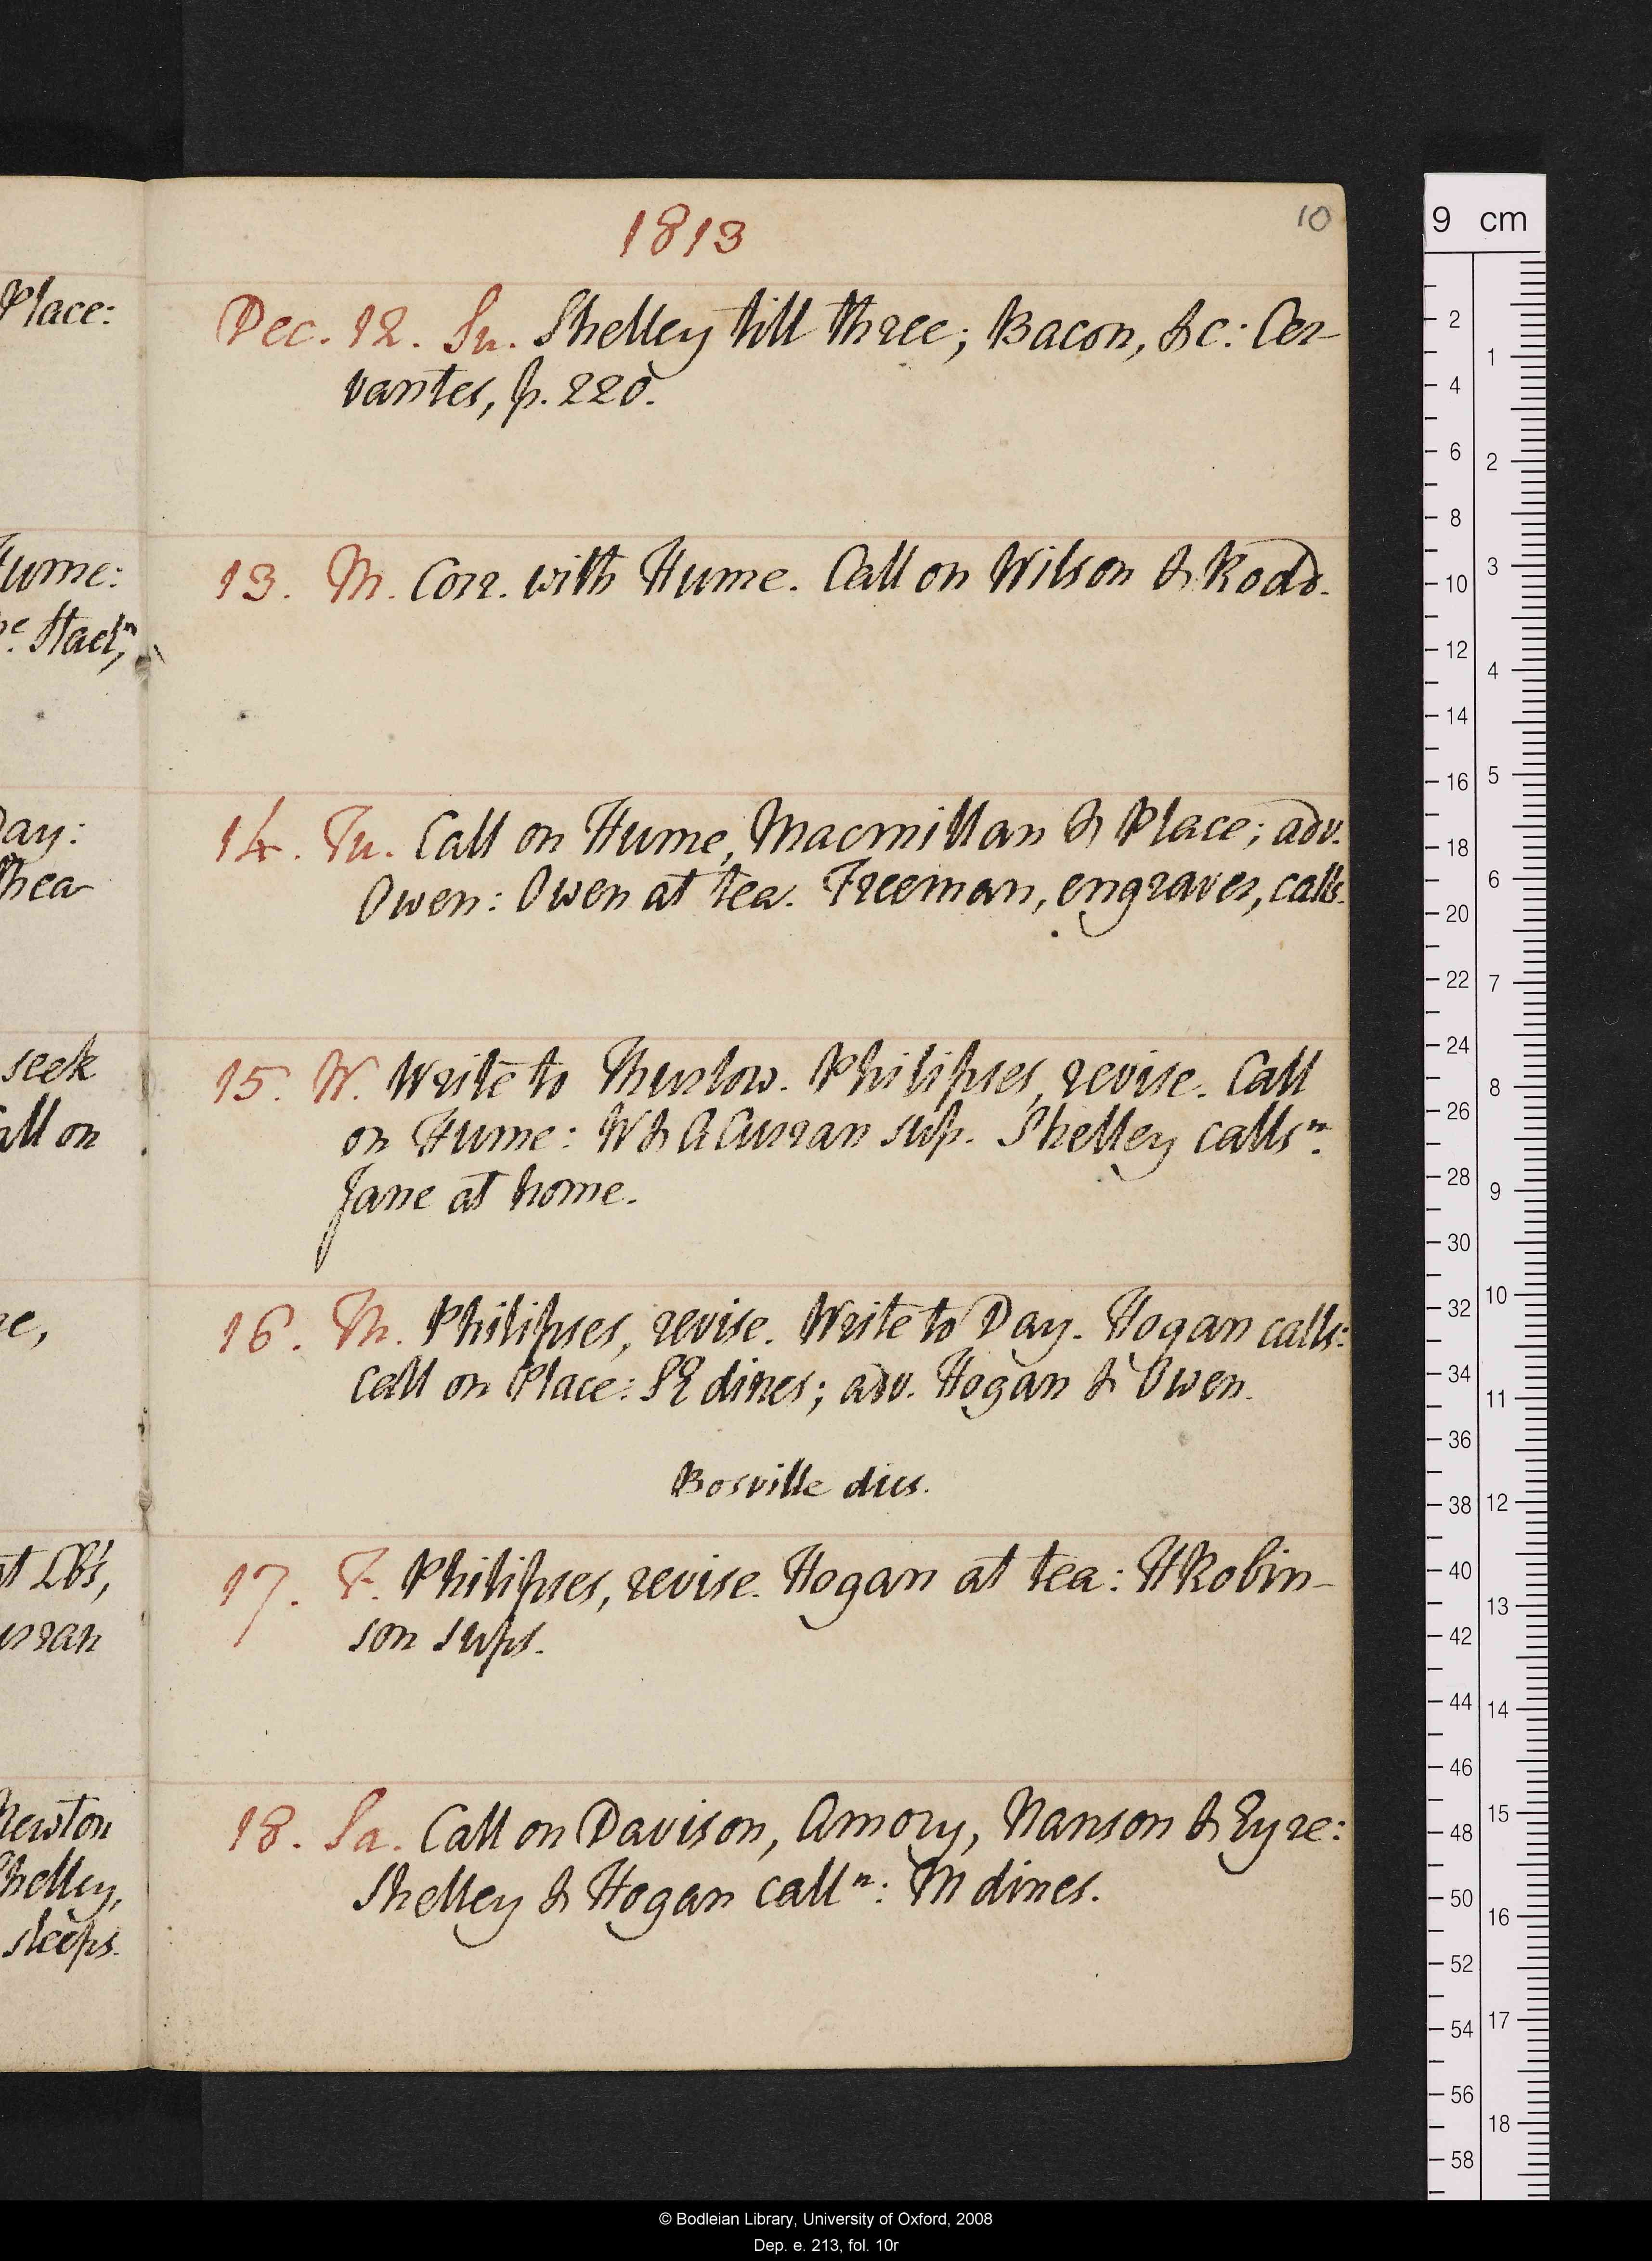 1813
10
Dec. 12. Su. Shelley till three; Bacon, &c: Cer-
vantes, p. 220.
13. M. Corr. with Hume. Call on Wilson & Rodd.
14. Tu. Call on Hume, Macmillan & Place; adv.
Owen: Owen at tea. Freeman, engraver, calls.
15. W. Write to Thurlow. Philipses, revise. Call
on Hume: W & A Curran sup. Shelley calls n.
Jane at home.
16. Th. Philipses, revise. Write to Day. Hogan calls:
call on Place: SE dines; adv. Hogan & Owen.
Bosville dies.
17. F. Philipses, revise. Hogan at tea: H Robin-
son sups.
18. Sa. Call on Davison, Amory, Nanson & Eyre:
Shelley & Hogan call n: M dines.
Place:
Hume:
Day:
Thea-
seek
all on
Curran
Newton
Shelley,
sleeps.
9 cm
2
4
6
8
10
12
14
16
18
20
22
24
26
28
30
32
34
36
38
40
42
44
46
48
50
52
54
56
58
1
2
3
4
5
6
7
8
9
10
11
12
13
14
15
16
17
18
© Bodleian Library, University of Oxford, 2008
Dep. e. 213, fol. 10r